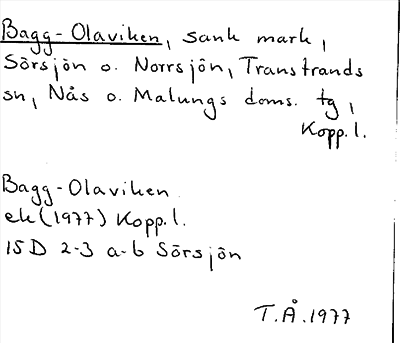 Bagg-Olaviken, sank mark,
Sörsjön o. Norrsjön, Transtrands
sn, Nås o. Malungs doms. tg,
Kopp. l.
Bagg-Olaviken
ek (1977) Kopp. l.
15D 2-3 a-b Sörsjön
T.Å. 1977